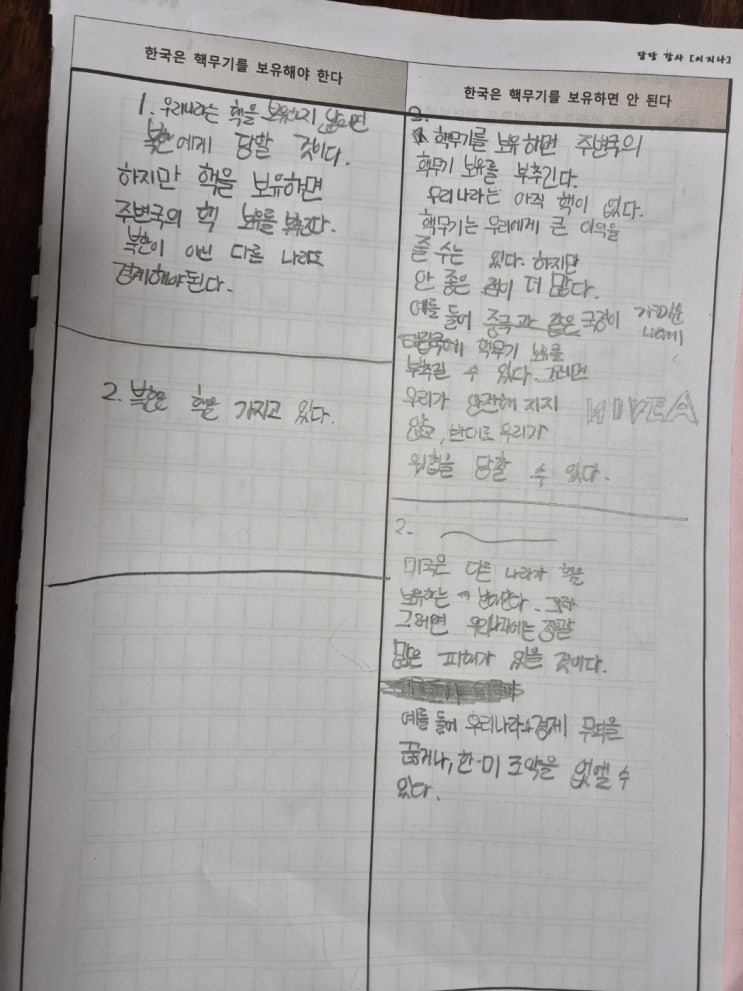 담당 강사 [이지나]
한국은 핵무기를 보유해야 한다
1. 우리나라는 핵을 보유하지 않으면
북한에게 당할 것이다.
하지만 핵을 보유하면
주변국의 핵 보유를 부추긴다.
북한이 아닌 다른 나라도
경계해야된다.
2. 북한은 핵을 가지고 있다.
한국은 핵무기를 보유하면 안 된다
핵무기를 보유하면 주변국의
핵무기 보유를 부추긴다.
우리나라는 아직 핵이 없다.
핵무기는 우리에게 큰 이익을
줄 수는 있다. 하지만
안 좋은 점이 더 많다.
예를 들어 중국과 같은 국경이 가까운
나라에
핵무기 보유를
부추길 수 있다. 그러면
우리가 안전해 지지
않고, 반대로 우리가
위험을 당할 수 있다.
NIVEA
2.
미국은 다른 나라가 핵을
보유하는 반대한다.
그러면 우리나라에는 정말
많은 피해가 있을 것이다.
예를 들어 우리나라 경제 무역을
끊거나, 한-미 조약을 없앨 수
있다.